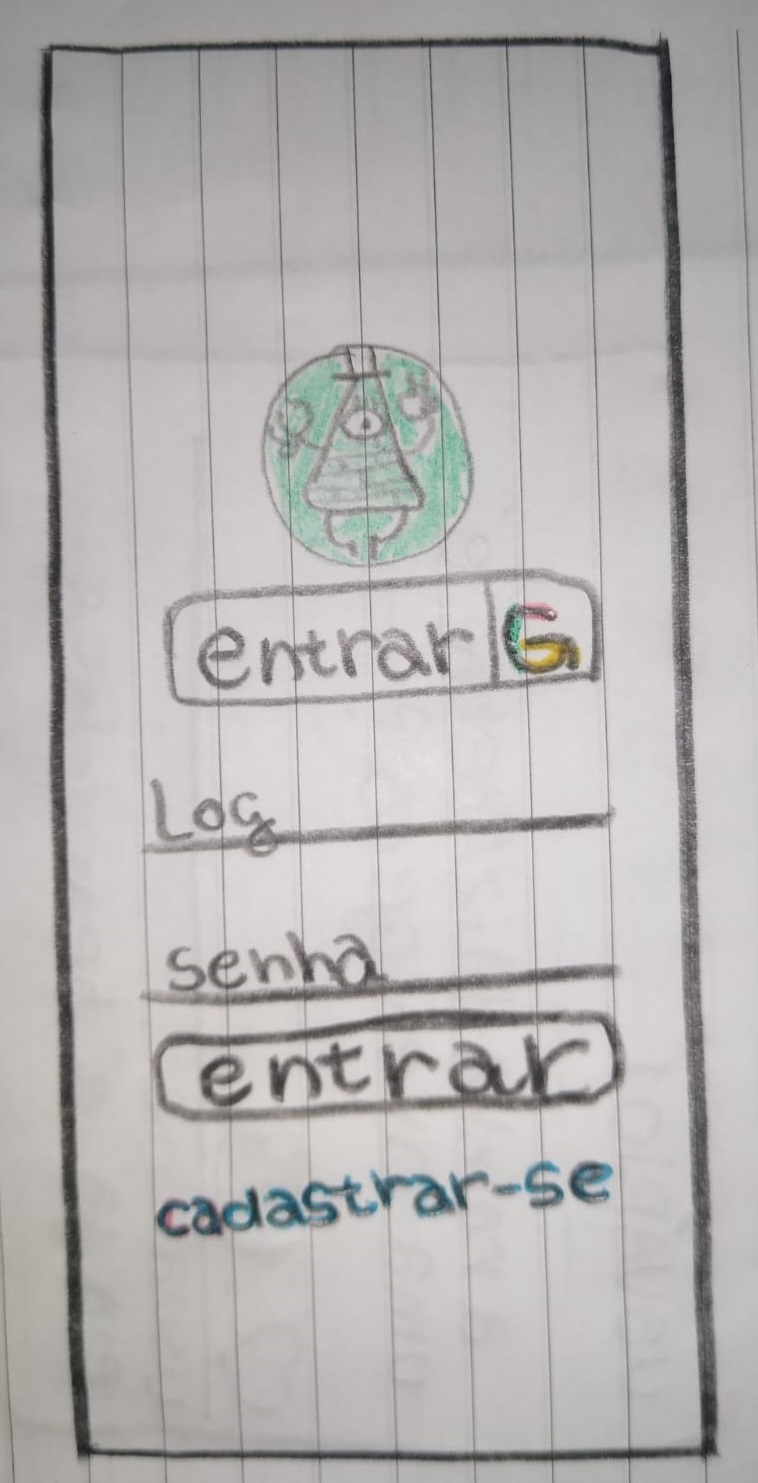 entrar G
Log
senha
entrar
cadastrar-se